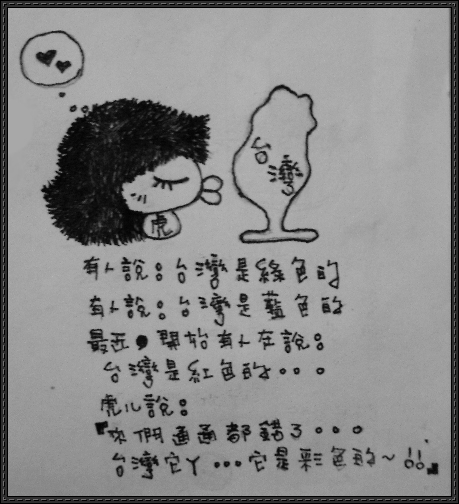 台
灣
虎
有人說：台灣是綠色的
有人說：台灣是藍色的
最近，開始有人在說：
台灣是紅色的...
虎儿說：
『你們通通都錯了...
台灣它ㄚ...它是彩色的~!!』